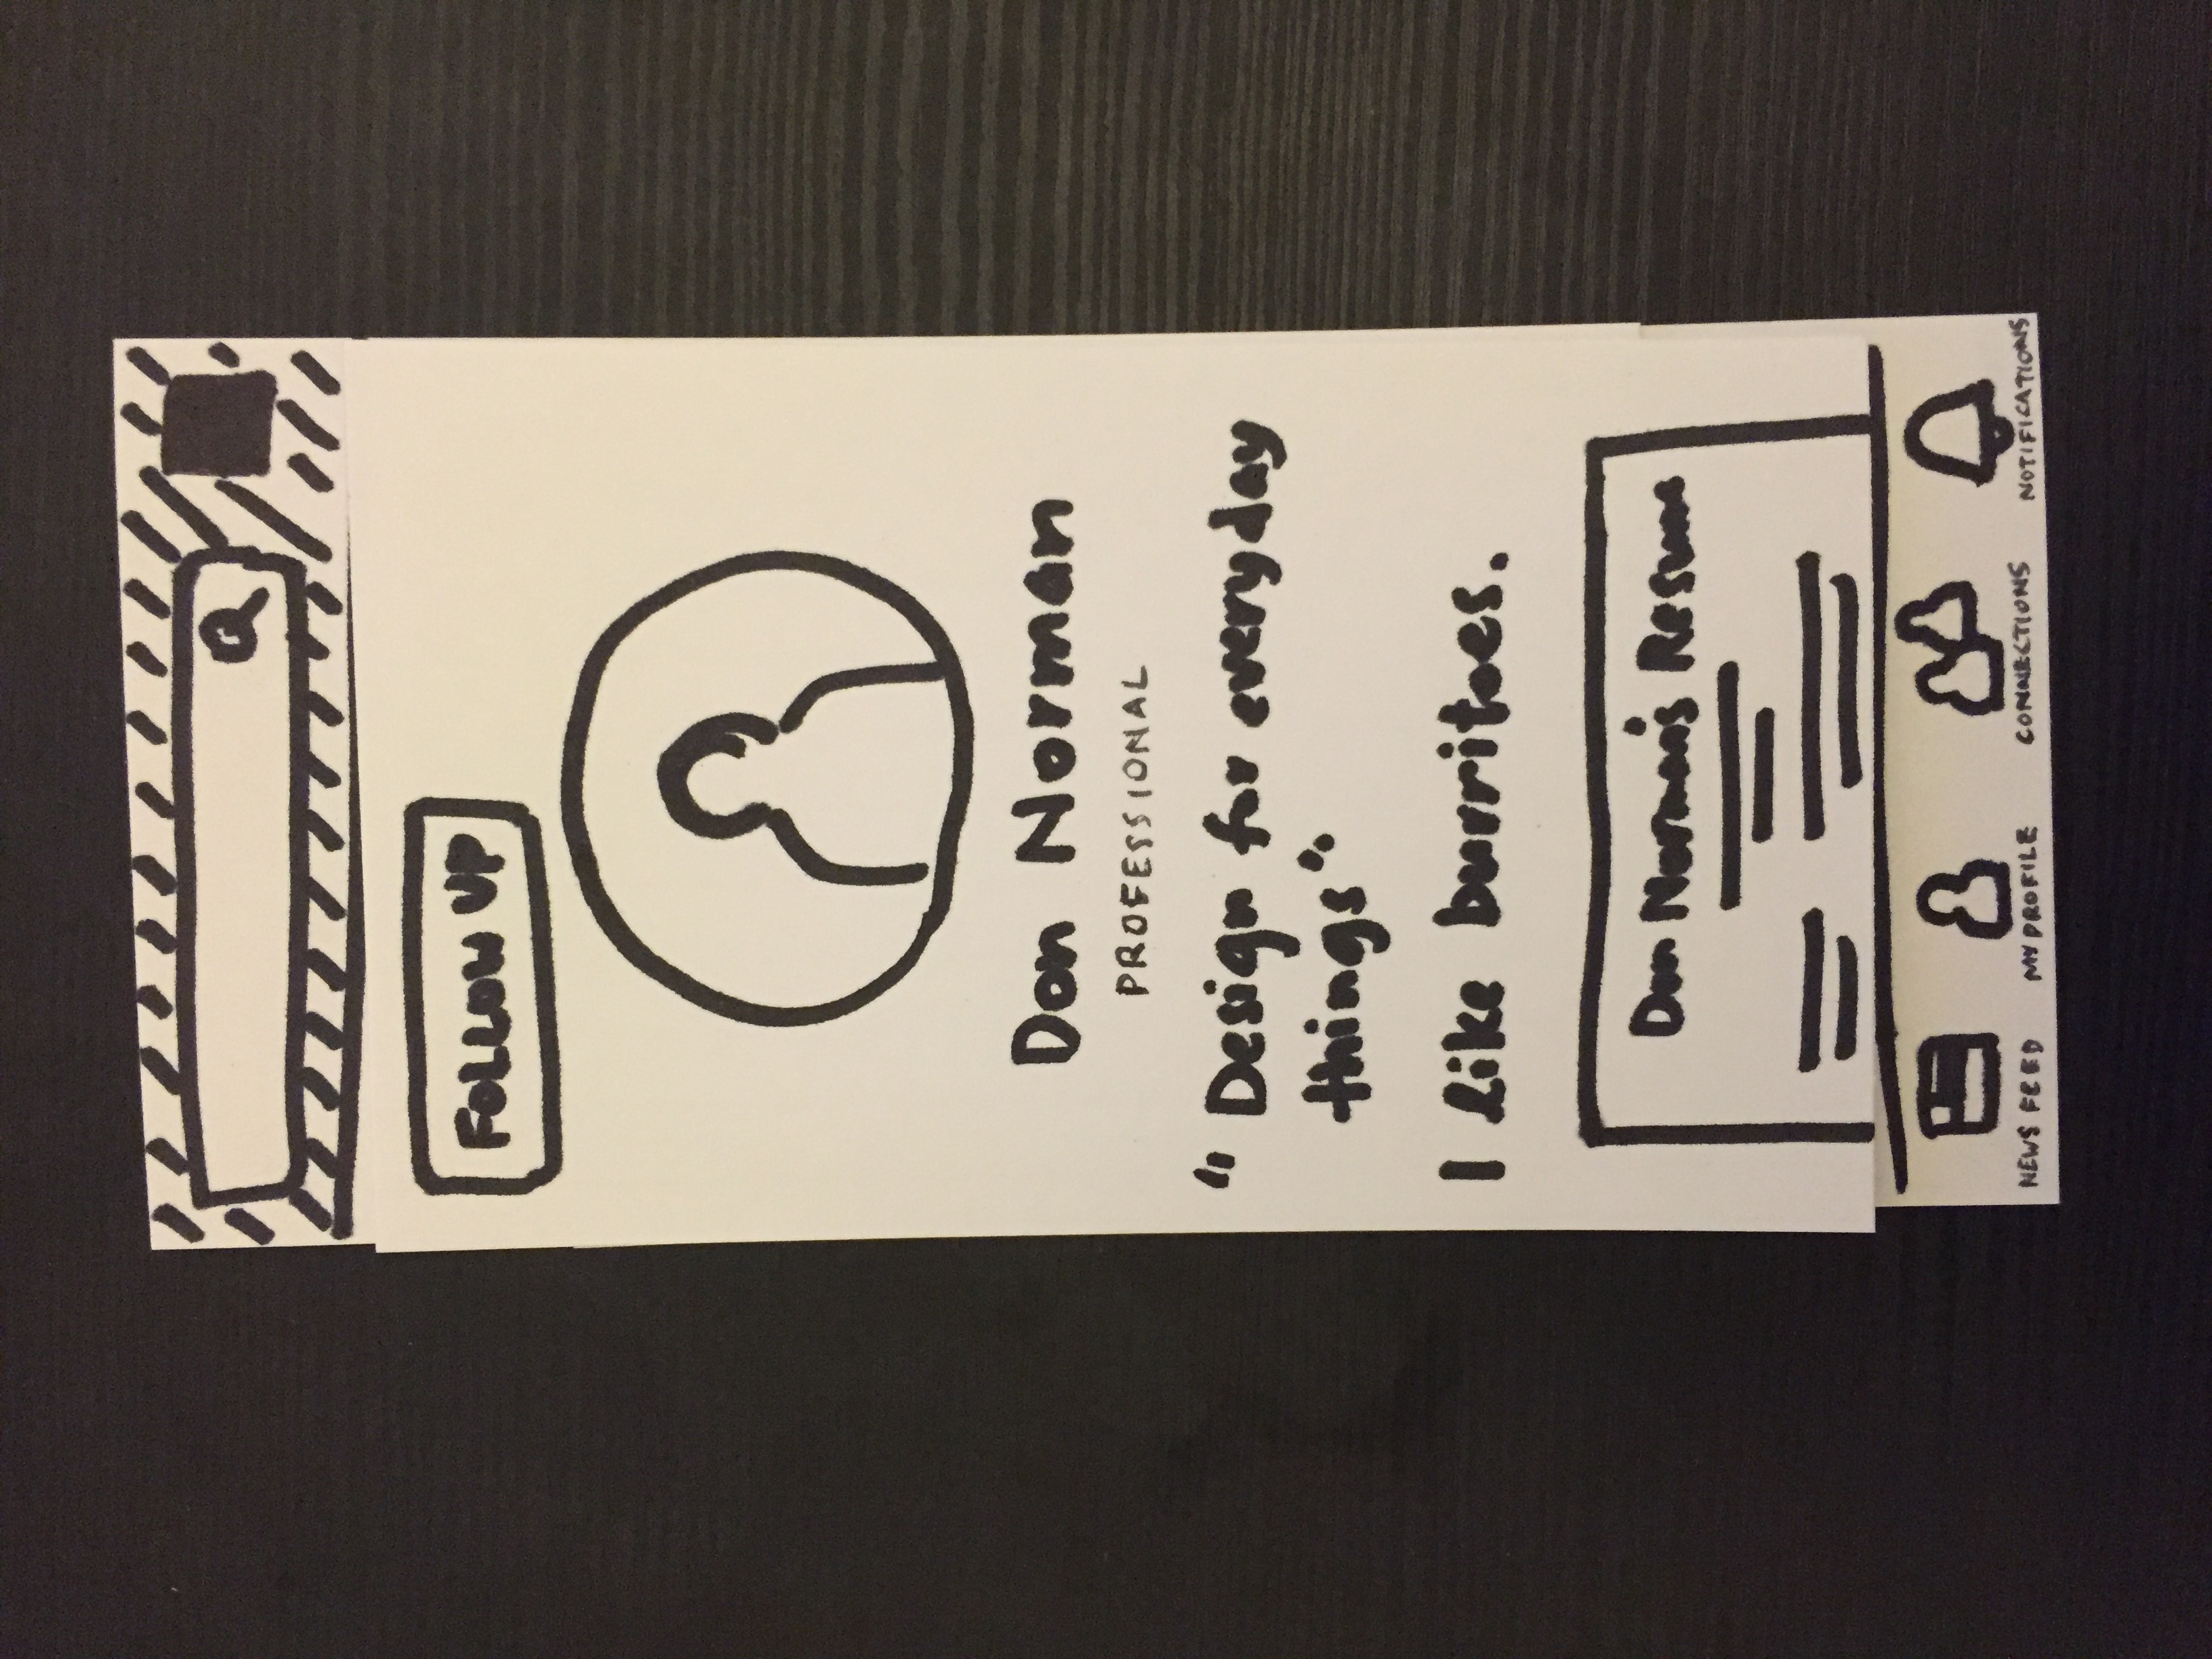 FOLLOW UP
Don Norman
PROFESSIONAL
"Design for everyday
things"
I like burritoes.
Don Norman's Resume
NEWS FEED MY PROFILE CONNECTIONS NOTIFICATIONS